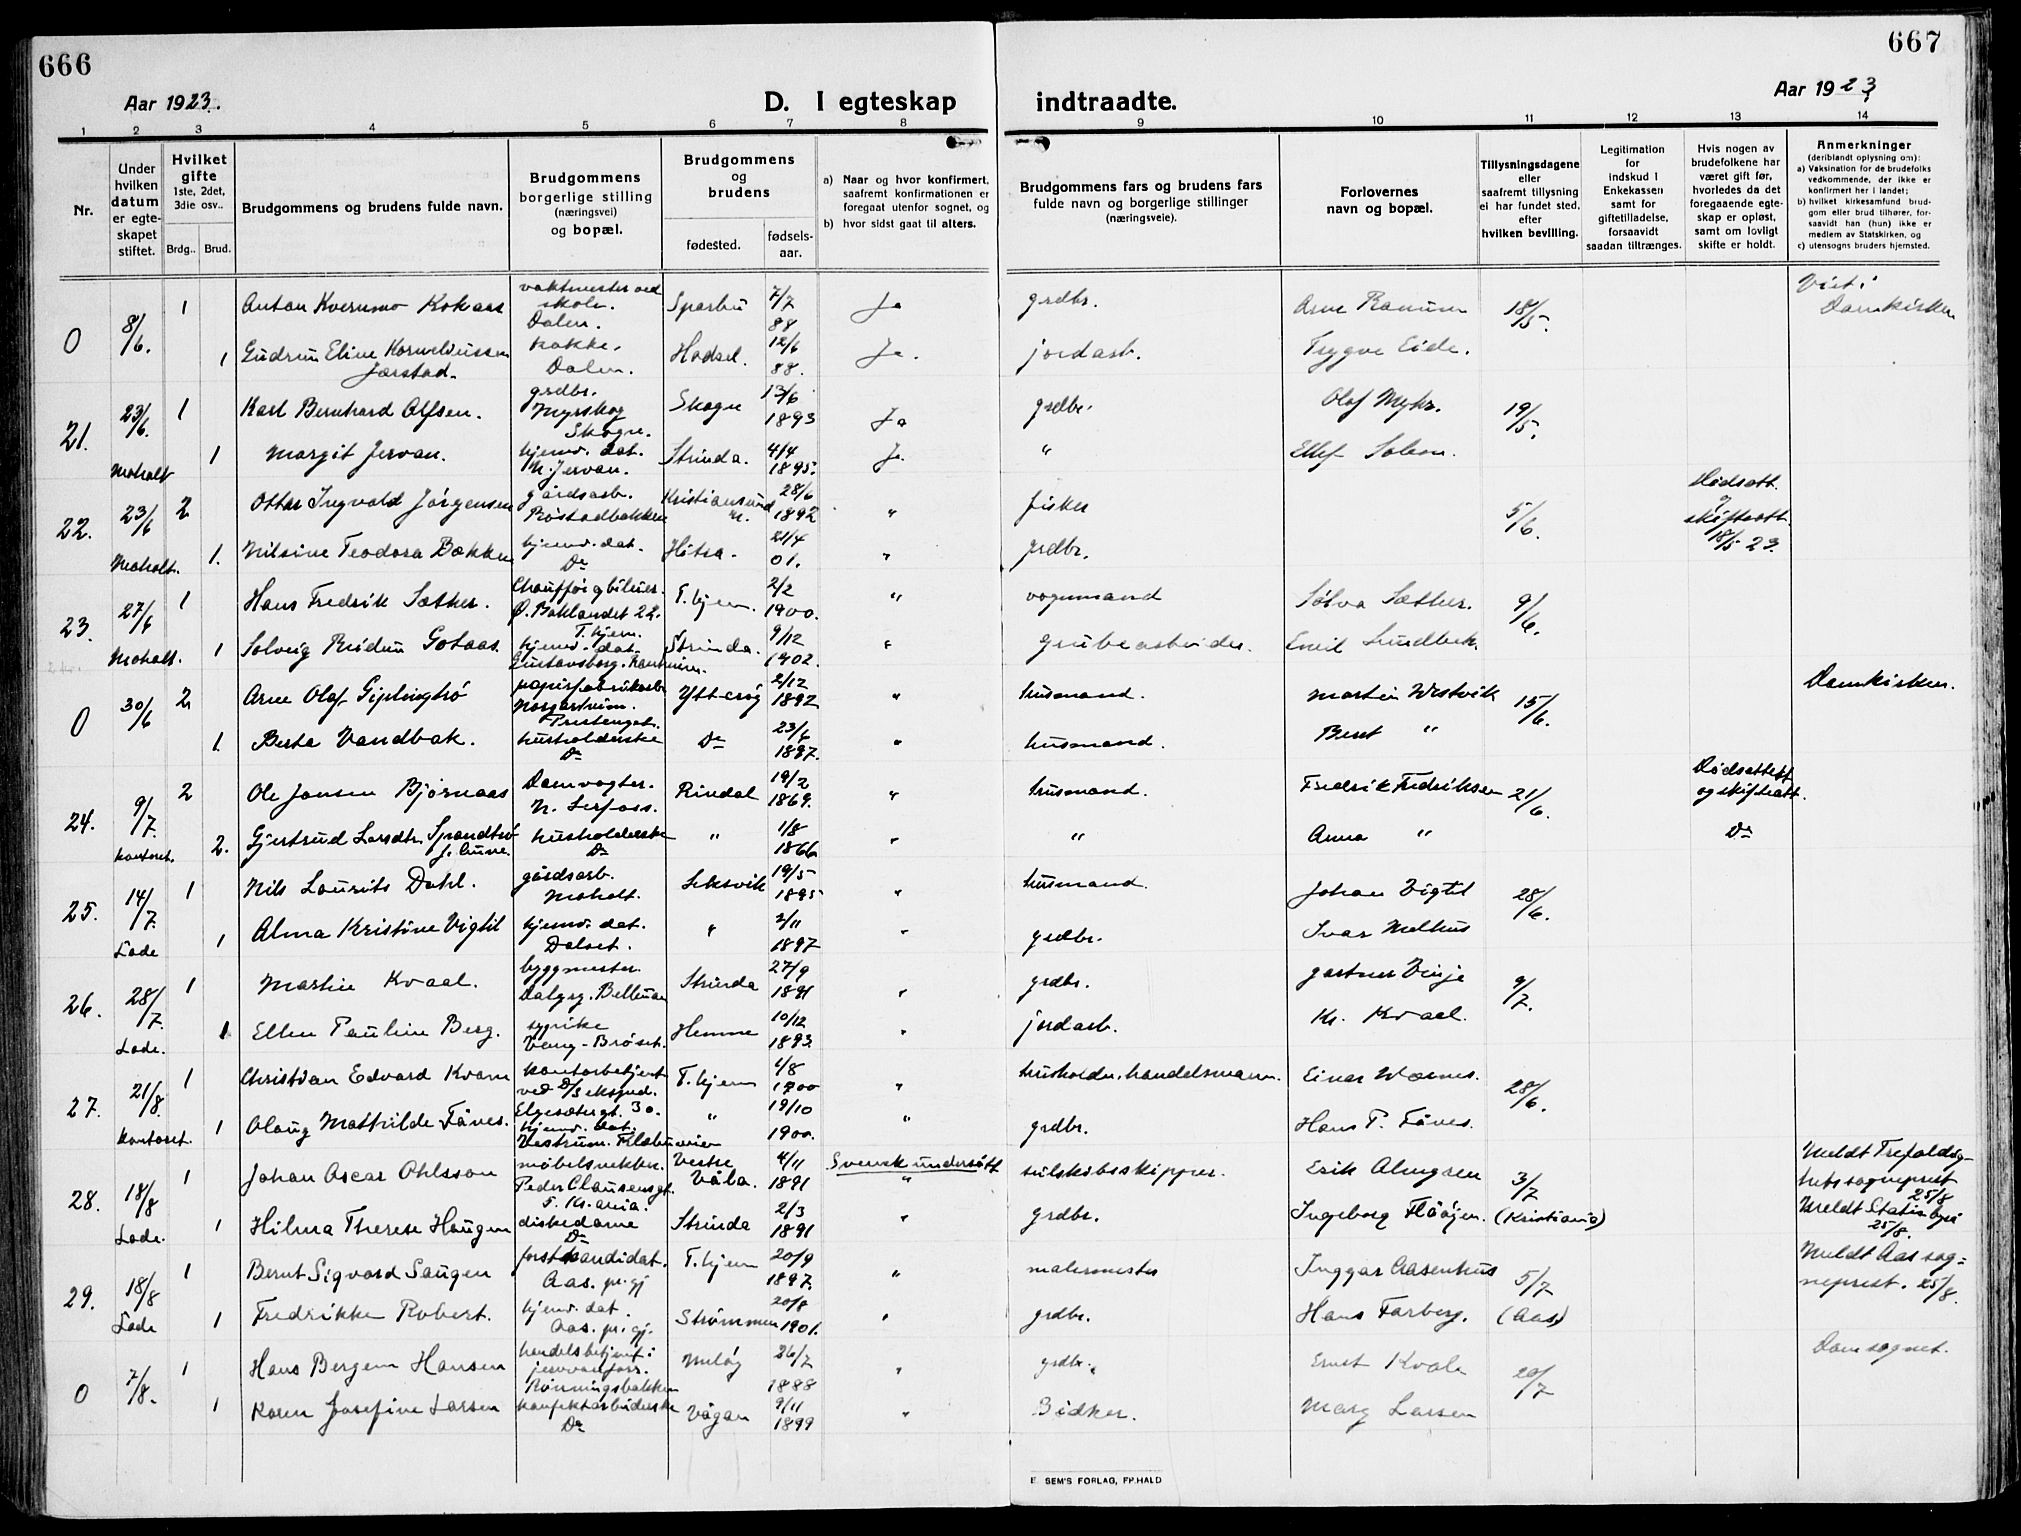 666
667
Aar 1923.
D. I egteskap
indtraadte.
Aar 1923
1 2 3 4 5 6 7 8 9 10 11 12 13 14
Nr.
Under hvilken datum er egteskapet stiftet.
Hvilket gifte 1ste, 2det, 3die osv.. Brdg.. Brud.
Brudgommens og brudens fulde navn.
Brudgommens borgerlige stilling (næringsvei) og bopæl.
Brudgommens og brudens fødested. fødsels-aar.
a) Naar og hvor konfirmert, saafremt konfirmationen er foregaat utenfor sognet, og
b) hvor sidst gaat til alters.
Brudgommens fars og brudens fars fulde navn og borgerlige stillinger (næringsveie).
Forlovernes navn og bopæl.
Tillysningsdagene eller saafremt tillysning ei har fundet sted, efter hvilken bevilling.
Legitimation for indskud i Enkekassen samt for giftetilladelse, forsaavidt saadan tiltrænges.
Hvis nogen av brudefolkene har været gift før, hvorledes da det foregaaende egteskap er opløst, samt om lovligt skifte er holdt.
Anmerkninger (deriblandt oplysning om):
a) Vaksination for de brudefolks vedkommende, der ikke er konfirmert her i landet;
b) hvilket kirkesamfund brudgom eller brud tilhører, forsaavidt han (hun) ikke er medlem av Statskirken, og
c) utensogns bruders hjemsted.
0 8/6. 1 Anton Kverumo Kokaas vaktmester ved skole. Dalen. Sparbu 7/7 88 Ja grdbr. Arne Ranum 18/5. Viet i Domkirken
1 Gudrun Eline Korneliussen Jørstad. kokke. Dalen. Hadsel. 12/6 88. Ja. jordarb. Trygve Eide.
21. 23/6. Moholt 1 Karl Bernhard Olfsen. grdbr. Myrskog Skogn. Skogn 13/6 1893 Ja grdbr. Olaf Myhr. 19/5.
1 Margit Jervan. hjemv. dat. N. Jervan. Strinda. 4/4 1895. Ja. " Ellef Solem.
22. 23/6 Moholt. 2 Ottar Ingvald Jørgensen gårdsarb. Rostadbakken Kristiansund N. 28/6 1892 " fisker 5/6. Dødsatt. og skifteatt. 18/5 23.
1. Nilsine Teodora Bækken hjemv. dat. Do Hitra. 21/4 01. " grdbr.
23. 27/6 Moholt. 1 Hans Fredrik Sæther. Chauffør og bileier. Ø. Baklandet 22. T.hjem. T.hjem. 2/2 1900. " vognmand Sølva Sæther. 9/6.
1 Solveig Reidun Gotaas hjemv. dat. Gustavsborg. Strinda. 9/12 1902. " grubearbeider. Emil Lundbek.
0 30/6 2 Arne Olaf Giplingtrø papirfabrikarb. Prestenget. Ytterøy 2/12 1892 " husmand. Martin Westvik 15/6. Domkirken.
1. Berta Vandbak. husholderske Do Do 23/4 1887. " husmand. Beret "
24. 9/7. kontoret. 2 Ole Jonsen Bjørnaas Damvogter. N. Lerfoss. Rindal 19/2 1869. " husmand. Fredrik Fredriksen 21/6. Dødsattest og skifteatt.
2. Gjertrud Larsdtr. Sprandtrø f. Cune. husholderske Do " 1/8 1866 " " Anna " Do
25. 14/7. Lade 1 Nils Laurits Dahl. gårdsarb. Moholt. Leksvik 19/5 1895 " husmand. Johan Vigtil 28/6.
1 Alma Kristine Vigtil hjemv. dat. Dalset. " 2/11 1897 " grdbr. Ivar Melhus
26. 28/7. Lade. 1 Martin Kvaal. byggmester. Dalgsg. Bellman Strinda 27/9 1891 " grdbr. gartner Vinje 9/7.
1 Ellen Pauline Berg. sypike Vang-Brøset. Hemne 10/12 1893. " jordarb. Kr. Kvaal.
27. 21/8. Kontoret. 1 Christian Edvard Kvam kontorbetjent ved D/S ekspd. Elgesætergt. 30. T.hjem 4/8 1900 " husholdn. handelsmann. Einar Wærnes. 28/6.
1 Olaug Mathilde Tånes. hjemv. dat. Vestrum. " 19/10 1900. " grdbr. Hans P. Tånes.
28. 18/8 Lade. 1 Johan Oscar Ohlsson møbelsnekker. Peder Clausensgt. 5. Kr.ania. Vestre Våla. 4/11 1891 Svensk undersått " seilskibsskipper. Erik Almgren 3/7 (Kristiania) Meldt Trefoldighets sogneprest 25/8
1 Hilma Therese Haugen diskedame Do Strinda 2/3 1891 " grdbr. Ingeborg Flåøjen. Meldt Statis. byrå 25/8.
29. 18/8 Lade 1 Bernt Sigvard Saugen forstkandidat. Aas. pr. gj T.hjem 20/9 1897. " malermester Inggar Aasenhus 5/7 (Aas) Meldt Aas sogneprest. 25/8.
1 Fredrikke Robert. hjemv. dat. Aas. pr. gj. Strømmen 20/8 1901. " grdbr. Hans Farberg.
0 7/8. 1 Hans Bergem Hansen handelsbetjent i jernvarforr. Rønningsbakken Meløy 26/7 1888 " grdbr. Ernst Kvale 20/7 Domsognet.
1 Karen Josefine Larsen konfektarbeiderske Do Vågan 9/11 1899 " Bødker. Marg Larsen
E. SEM'S FORLAG, FR.HALD